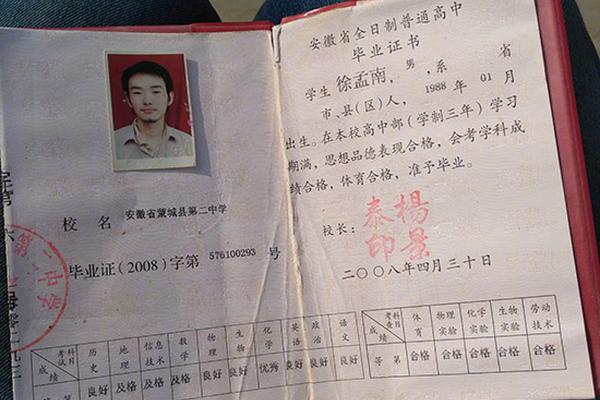 校 名 安徽省蒙城县第二中学
毕业证(2008)字第 576100293 号
考试科目 历史 地理 信息技术 数学 物理 生物 化学 英语 政治 语文
成绩 良好 及格 及格 及格 良好 良好 优秀 良好 良好 良好
安徽省全日制普通高中
毕业证书
学生 徐孟南，男，系 省
市、县(区)人，1988 年 01 月
出生。在本校高中部(学制三年)学习
期满，思想品德表现合格，会考学科成
绩合格，体育合格，准予毕业。
校长：
楊景
泰印
二〇〇八年四月三十日
考查科目 体育 物理实验 化学实验 生物实验 劳动技术
成绩
等 第 合格 合格 合格 合格 合格
第二中学